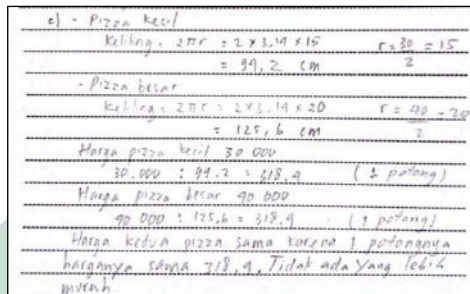 c) - Pizza kecil
Keliling = 2πr = 2 x 3,14 x 15 r = 30/2 = 15
= 94,2 cm
- Pizza besar
Keliling = 2πr = 2 x 3,14 x 20 r = 40/2 = 20
= 125,6 cm
Harga pizza kecil 30 000
30.000 : 94.2 = 318,4 (1 potong)
Harga pizza besar 40 000
40 000 : 125,6 = 318,4 (1 potong)
Harga kedua pizza sama karena 1 potongnya
harganya sama 318,4. Tidak ada yang lebih
murah